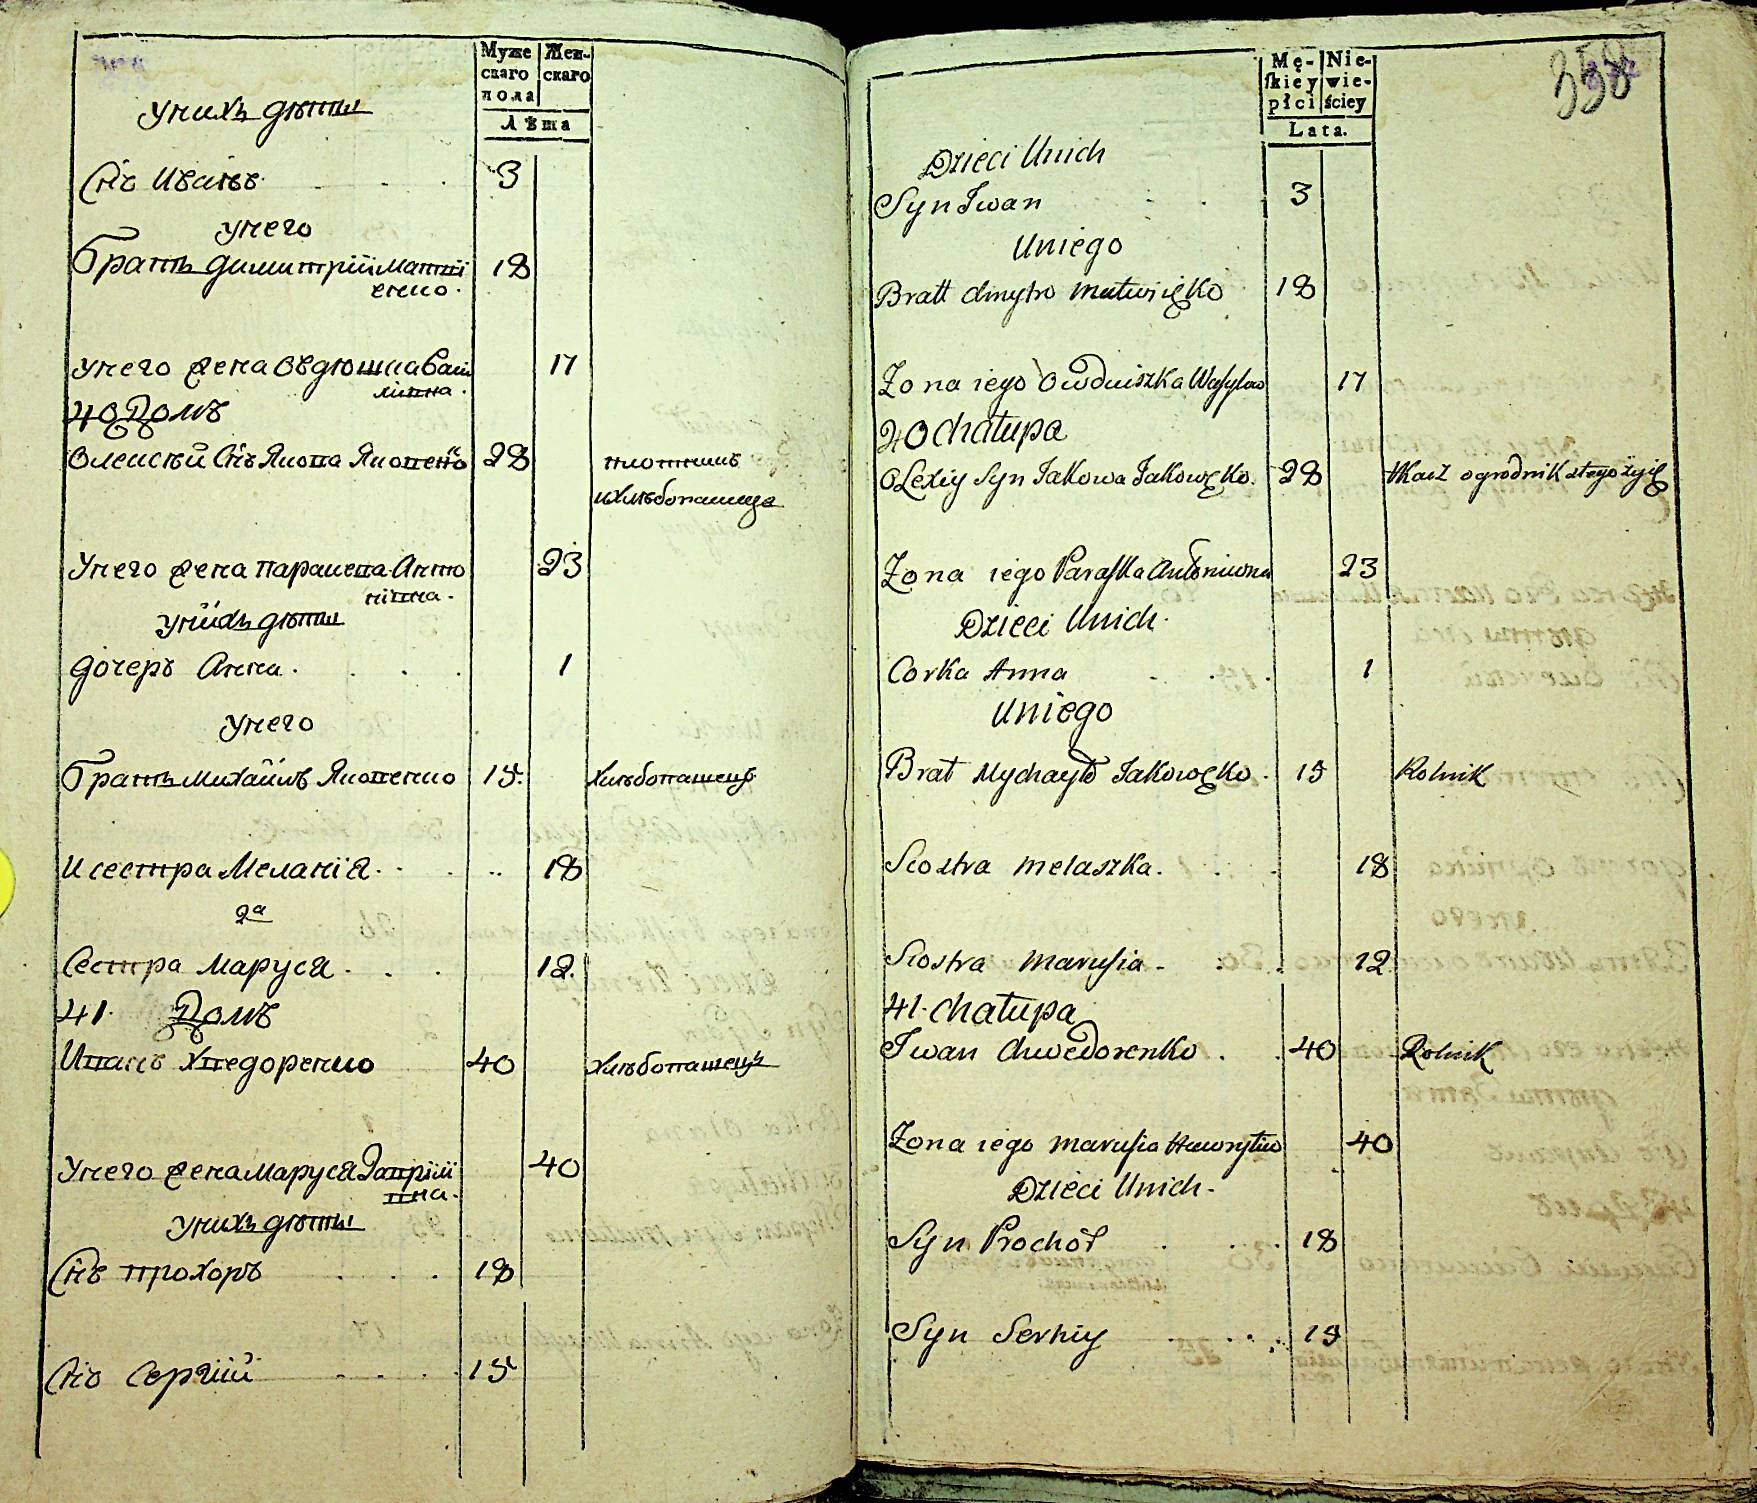 Муже Жен-
скаго скаго
пола
Лѣта
у нихъ дѣти
Снъ Иванъ 3
у него
братъ димитрій матвій 18
енко.
у него жена Овдюшка Васи 17
лівна.
40 Домъ
Олексѣй Снъ Якова Яковенко 28
и хлѣбопашецъ
у него жена параскева Анто 23
нівна.
у нихъ дѣти
дочеръ Анна. 1
у него
братъ михайлъ Яковенко 15. хлѣбопашецъ
и сестра Меланія 18
2а
Сестра маруся 12.
41. Домъ
Иванъ Хведоренко 40 хлѣбопашецъ
у него жена маруся Гаврій 40
вна.
у нихъ дѣти
Снъ прохоръ 18
Снъ Сергій 15
358
Mę- Nie-
ſkiey wie-
płci ściey
Lata.
Dzieci Unich
Syn Iwan 3
Uniego
Bratt dmytro matwiięko 18
Zona iego Owduiszka Wasylow 17
40 chałupa
Olexiy Syn Jakowa Jakowęko. 28 tkacz ogrodnik ztego żyię
Zona iego Paraſka Antoniwna 23
Dzieci Unich.
Corka Anna 1
Uniego
Brat Mychayło Jakowęko. 15 Rolnik
Siostra melaszka. 18
Siostra marusia 12
41. chałupa
Iwan chwedorenko 40 Rolnik
Zona iego marusia Hawryłiw 40
Dzieci Unich.
Syn Prochor 18
Syn Serhiy 15